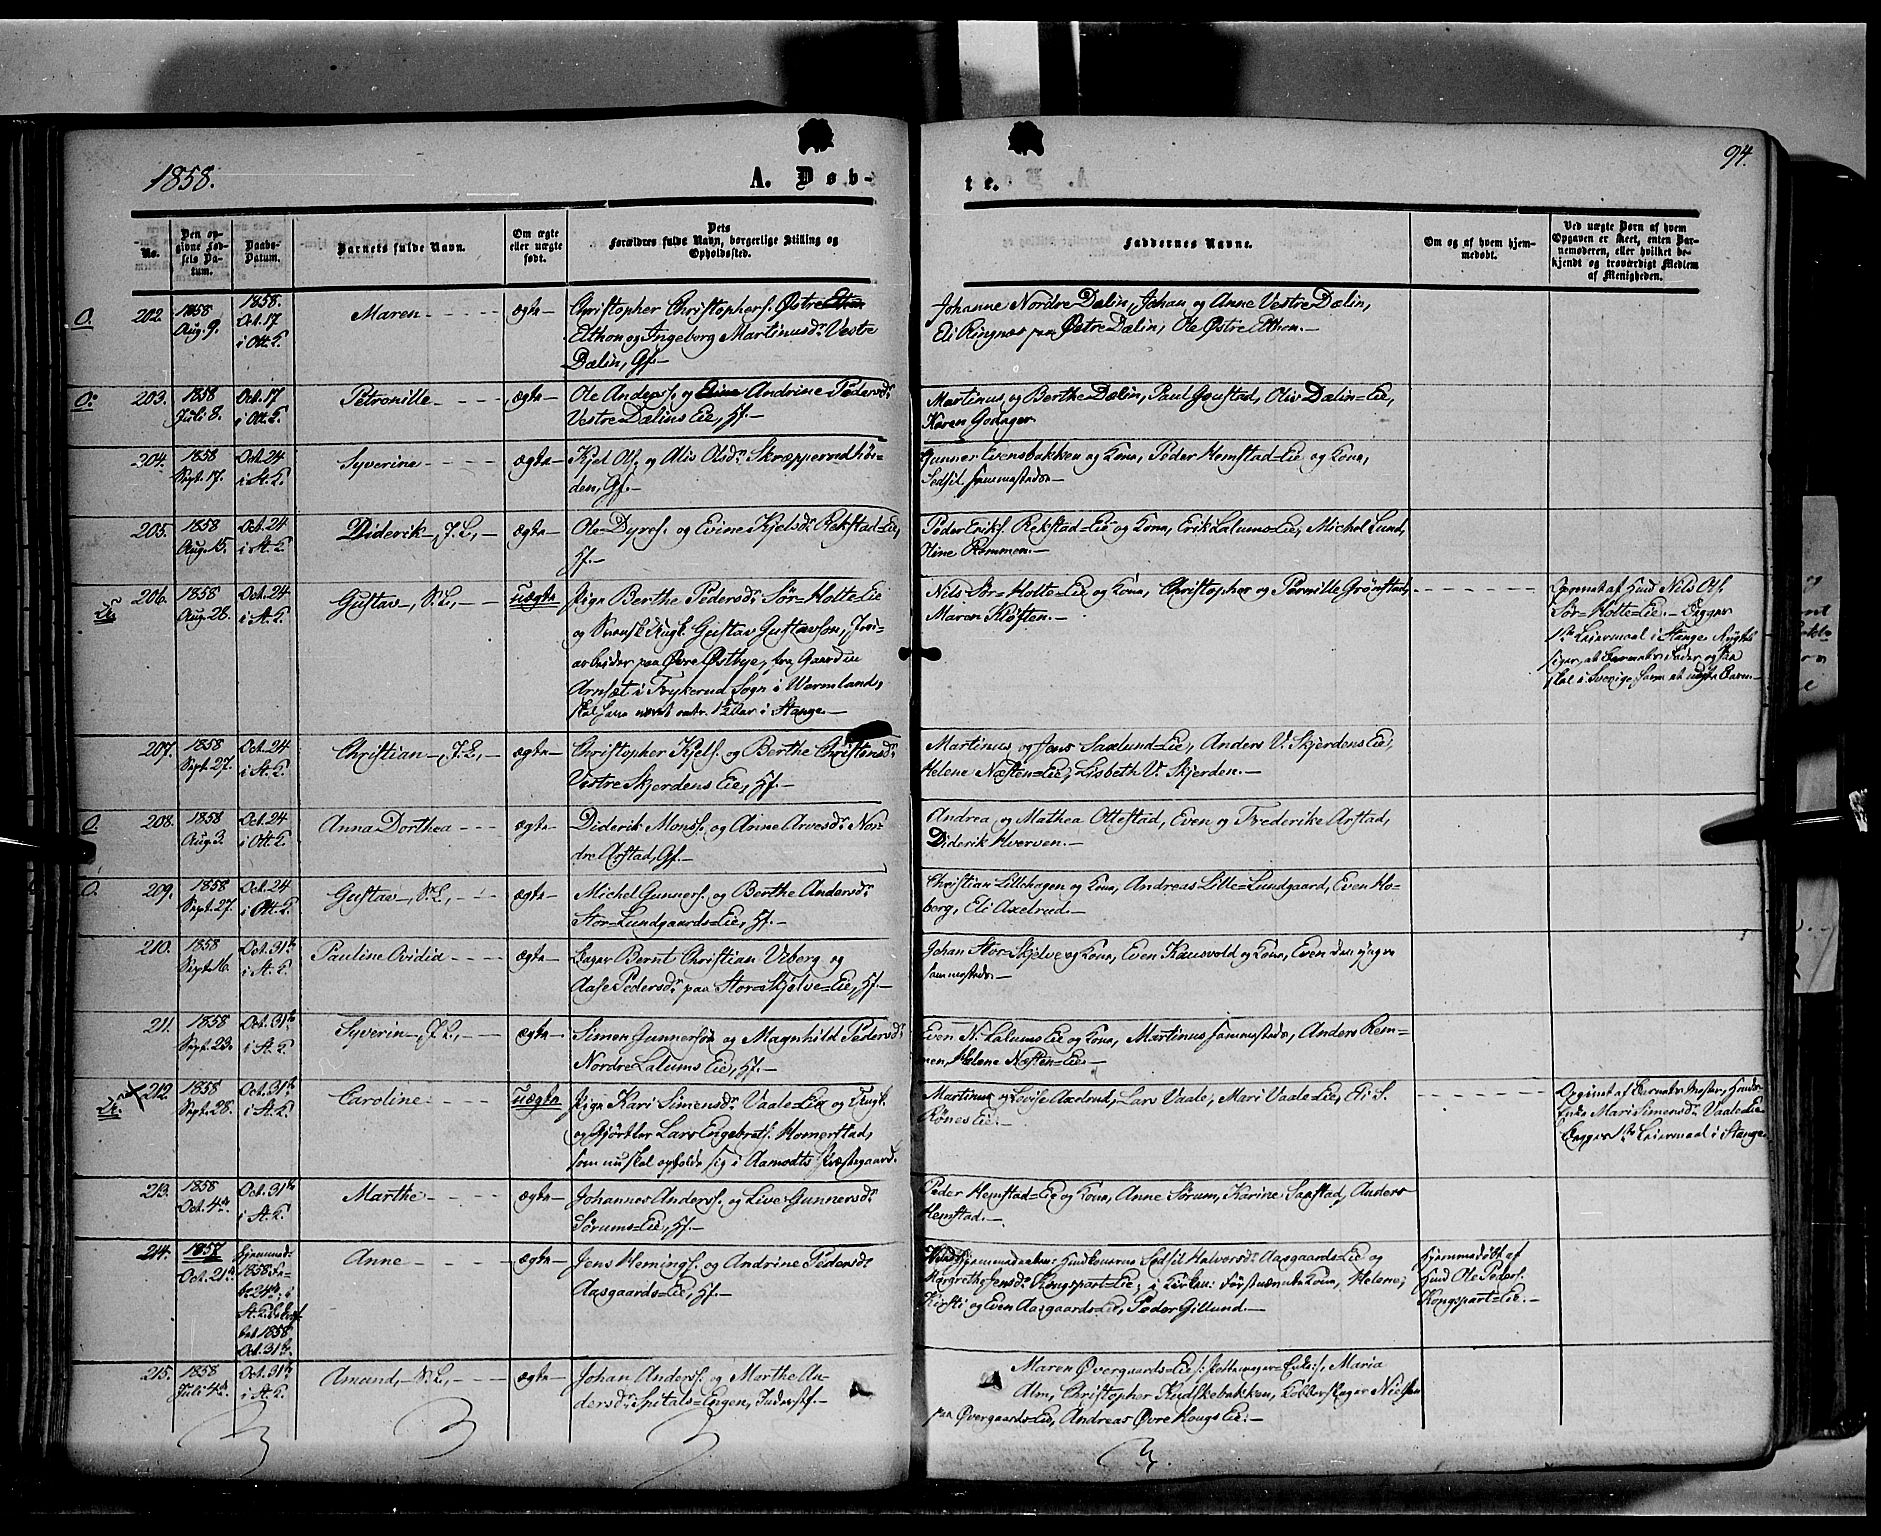 1858.
A. Døb-
te.
94.
No.
Den op-
givne Fød-
sels Da-
tum.
Daabs-
Datum.
Barnets fulde Navn.
Om ægte
eller uægte
født.
Dets
Forældres fulde Navn, borgerlige Stilling og
Opholdssted.
Faddernes Navne.
Om og af hvem hjem-
medøbt.
Ved uægte Børn af hvem
Opgaven er skeet, enten Bar-
nemoderen, eller hvilket be-
kjendt og troværdigt Medlem
af Menigheden.
O. 202. 1858 Aug. 9.
1858. Oct. 17 i Ott. K.
Maren
ægte
Christopher Christophers. Østre
Elthon og Ingeborg Martinusd. Vestre
Dælin, Gf.
Johanne Nordre Dælin, Johan og Anne Vestre Dælin,
Eli Ringnes paa Østre Dælin, Ole Østre Elthon.
O. 203. 1858 Juli 8.
Oct. 17 i Ott. K.
Petronille
ægte
Ole Anders. og Andrine Pedersd.
Vestre Dælins Eie, Hf.
Martinus og Berthe Dælin, Paul Gaustad, Oliv Dælin=Eie,
Karen Godager
204. 1858 Sept. 17.
Oct. 24 i St. K.
Syverine
ægte
Kjel Ols. og Aliv Olsd. Skræpperudhør-
den, Gf.
Gunner Evensbakken og Kone, Peder Hemstad=Eie og Kone,
Sedsil sammesteds
205. 1858 Aug. 15.
Oct. 24 i St. K.
Diderik, J. L.,
ægte
Ole Dyres. og Evine Kjelsd. Rekstad=Eie,
Hf.
Peder Eriks. Rekstad=Eie og Kone, Erik Lalums=Eie, Michel Lund,
Oline Rommen.
206. 1858 Aug. 28.
Oct. 24 i St. K.
Gustav, S. L.,
uægte
Pige Berthe Pedersd. Sør=Holte Eie
og Svensk Ungk. Gustav Gustavson, Jordar-
beider paa Øvre Østbye, fra Gaarden
Arnsæt i Frykerud Sogn i Wermland,
skal have været omtr. 1 Aar i Stange.
Nils Sør=Holte=Eie og Kone, Christopher og Pernille Grønstad,
Maren Kløften.
Opgivet af Huusm. Nils Ols.
Sør=Holte=Eie. Begges
1ste Leiermaal i Stange.
siger, at Barnets Fader ogsaa
skal i Sverige have et uægte Barn.
207. 1858 Sept. 27.
Oct. 24 i St. K.
Christian, J. L.,
ægte
Christopher Kjels. og Berthe Christensd.
Vestre Skjerdens Eie, Hf.
Martinus og Jens Saxlund=Eie, Anders V. Skjerdens Eie,
Helene Næsten=Eie, Lisbeth V. Skjerden.
O. 208. 1858 Aug. 3.
Oct. 24 i Ott. K.
Anna Dorthea
ægte
Diderik Mons. og Anne Arvesd. Nor-
dre Arstad, Gf.
Andrea og Mathea Ottestad, Even og Frederike Arstad,
Diderik Hverven.
O. 209. 1858 Sept. 27.
Oct. 24 i Ott. K.
Gustav, S. L.,
ægte
Michel Gunners. og Berthe Andersd.
Stor=Lundgaards=Eie, Hf.
Christian Lillehagen og Kone, Andreas Lille=Lundgaard, Even Ho-
berg, Eli Axelrud.
210. 1858 Sept. 16.
Oct. 31te i St. K.
Pauline Ovidia
ægte
Bager Bernt Christian Viberg og
Aase Pedersd. paa Stor=Skjelve=Eie, Hf.
Johan Stor=Skjelve og Kone, Even Kausvold og Kone, Even den yngre
sammesteds.
211. 1858 Sept. 23.
Oct. 31te i St. K.
Syverin, J. L.,
ægte
Simen Gunnersen og Magnhild Pedersd.
Nordre Lalums Eie, Hf.
Even N. Lalums Eie og Kone, Martinus sammesteds, Anders Rom-
men, Helene Næsten=Eie.
212. 1858 Sept. 28.
Oct. 31te i St. K.
Caroline
uægte
Pige Kari Simensd. Vaale=Eie og Ungk.
og Gjørtler Lars Engebrets. Homerstad,
som nu skal opholde sig i Aamodts Præstegaard.
Martinus og Lovise Axelrud, Lars Vaale, Mari Vaale=Eie, Eli S.
Rønes Eie.
Opgivet af Barnets Moster, Huusm.
Enke Mari Simensd. Vaale=Eie
Begges 1ste Leiermaal i Stange.
213. 1858 Oct. 4de
Oct. 31te i St. K.
Marthe
ægte
Johannes Anders. og Live Gunnersd.
Sørums=Eie, Hf.
Peder Hemstad=Eie og Kone, Anne Sørum, Karine Saxstad, Anders
Hemstad.
214. 1857 Oct. 21de
Hjemmed.
1858 Fe-
br. 24de, i
St. K. bekræf-
tet 1858
Oct. 31te.
Anne
ægte
Jens Hemings. og Andrine Pedersd.
Aasgaards=Eie, Hf.
Hjemmedaaben: Huuskonerne Sedsil Halvorsd. Aasgaards=Eie og
Margrethe Jensd. Kongspart=Eie; i Kirken: førstnævnte Kone, Helene,
Kirsti og Even Aasgaards=Eie, Peder Gillund.
Hjemmedøbt af
Huusm. Ole Peders.
Kongspart=Eie.
215. 1858 Juli 4de
Oct. 31te i St. K.
Amund, S. L.,
ægte
Johan Anders. og Marthe An-
dersd. Spitals=Engen, Inderst
Maren Øvergaards=Eie, Maria
Alm, Christopher Kudskebakken, Kobberslager Nielsen
paa Øvergaards=Eie, Andreas Øvre Hougs Eie.